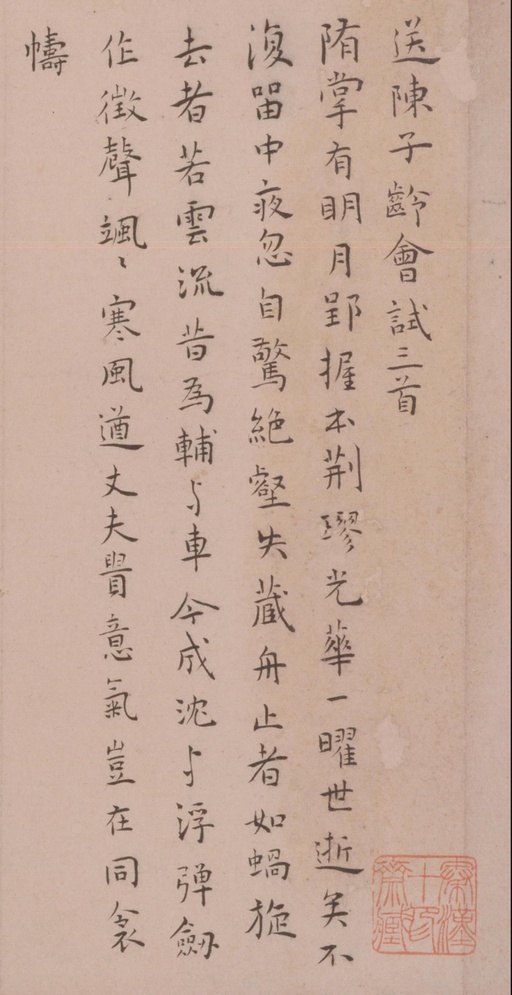 送陳子齡會試三首
隋掌有明月郢握本荆璆光華一曜世逝矣不
復畱中夜忽自驚絶壑失藏舟止者如蝸旋
去者若雲流昔為輔与車今成沈与浮彈劔
作徵聲颯〻寒風遒丈夫貴意氣豈在同衾
幬